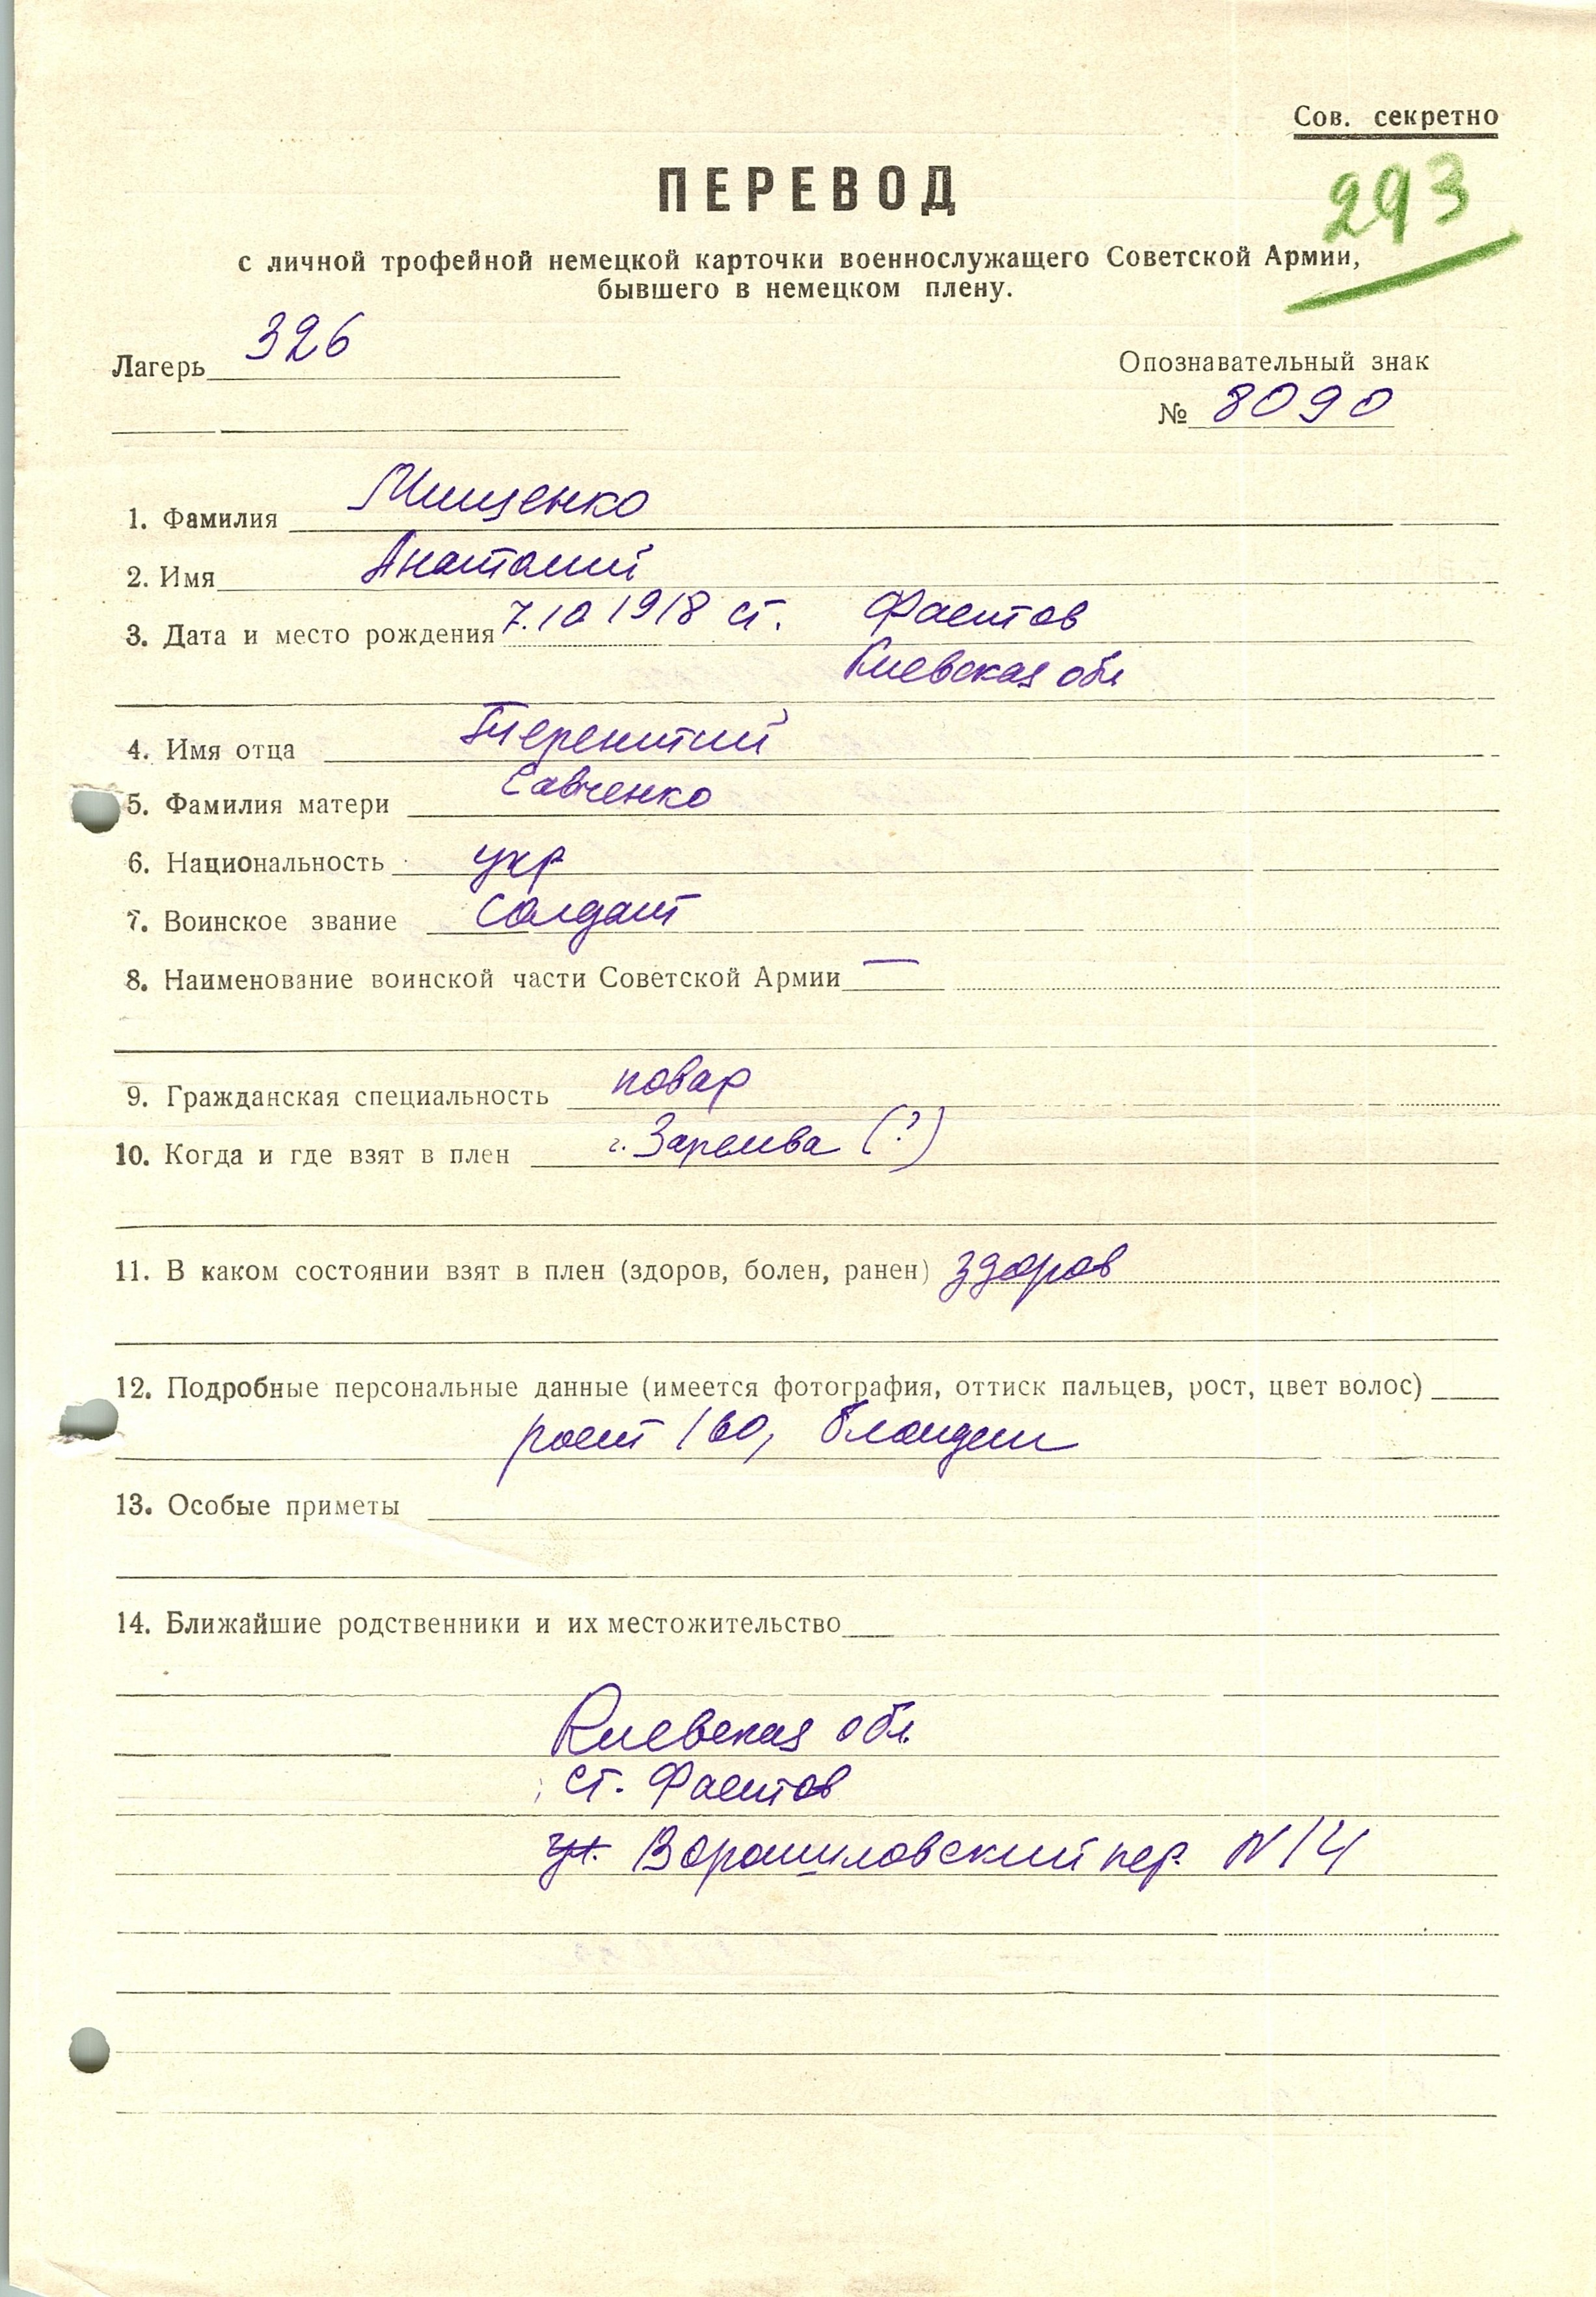 Сов. секретно
293
ПЕРЕВОД
с личной трофейной немецкой карточки военнослужащего Советской Армии,
бывшего в немецком плену.
Лагерь 326
Опознавательный знак
№ 8090
1. Фамилия Мищенко
2. Имя Анатолий
3. Дата и место рождения 7.10 1918 ст. Фастов
Киевская обл
4. Имя отца Терентий
5. Фамилия матери Савченко
6. Национальность укр
7. Воинское звание Солдат
8. Наименование воинской части Советской Армии —
9. Гражданская специальность повар
10. Когда и где взят в плен г. (?)
11. В каком состоянии взят в плен (здоров, болен, ранен) здоров
12. Подробные персональные данные (имеется фотография, оттиск пальцев, рост, цвет волос)
рост 160, блондин
13. Особые приметы
14. Ближайшие родственники и их местожительство
Киевская обл.
ст. Фастов
ул. Ворошиловский пер. N 14